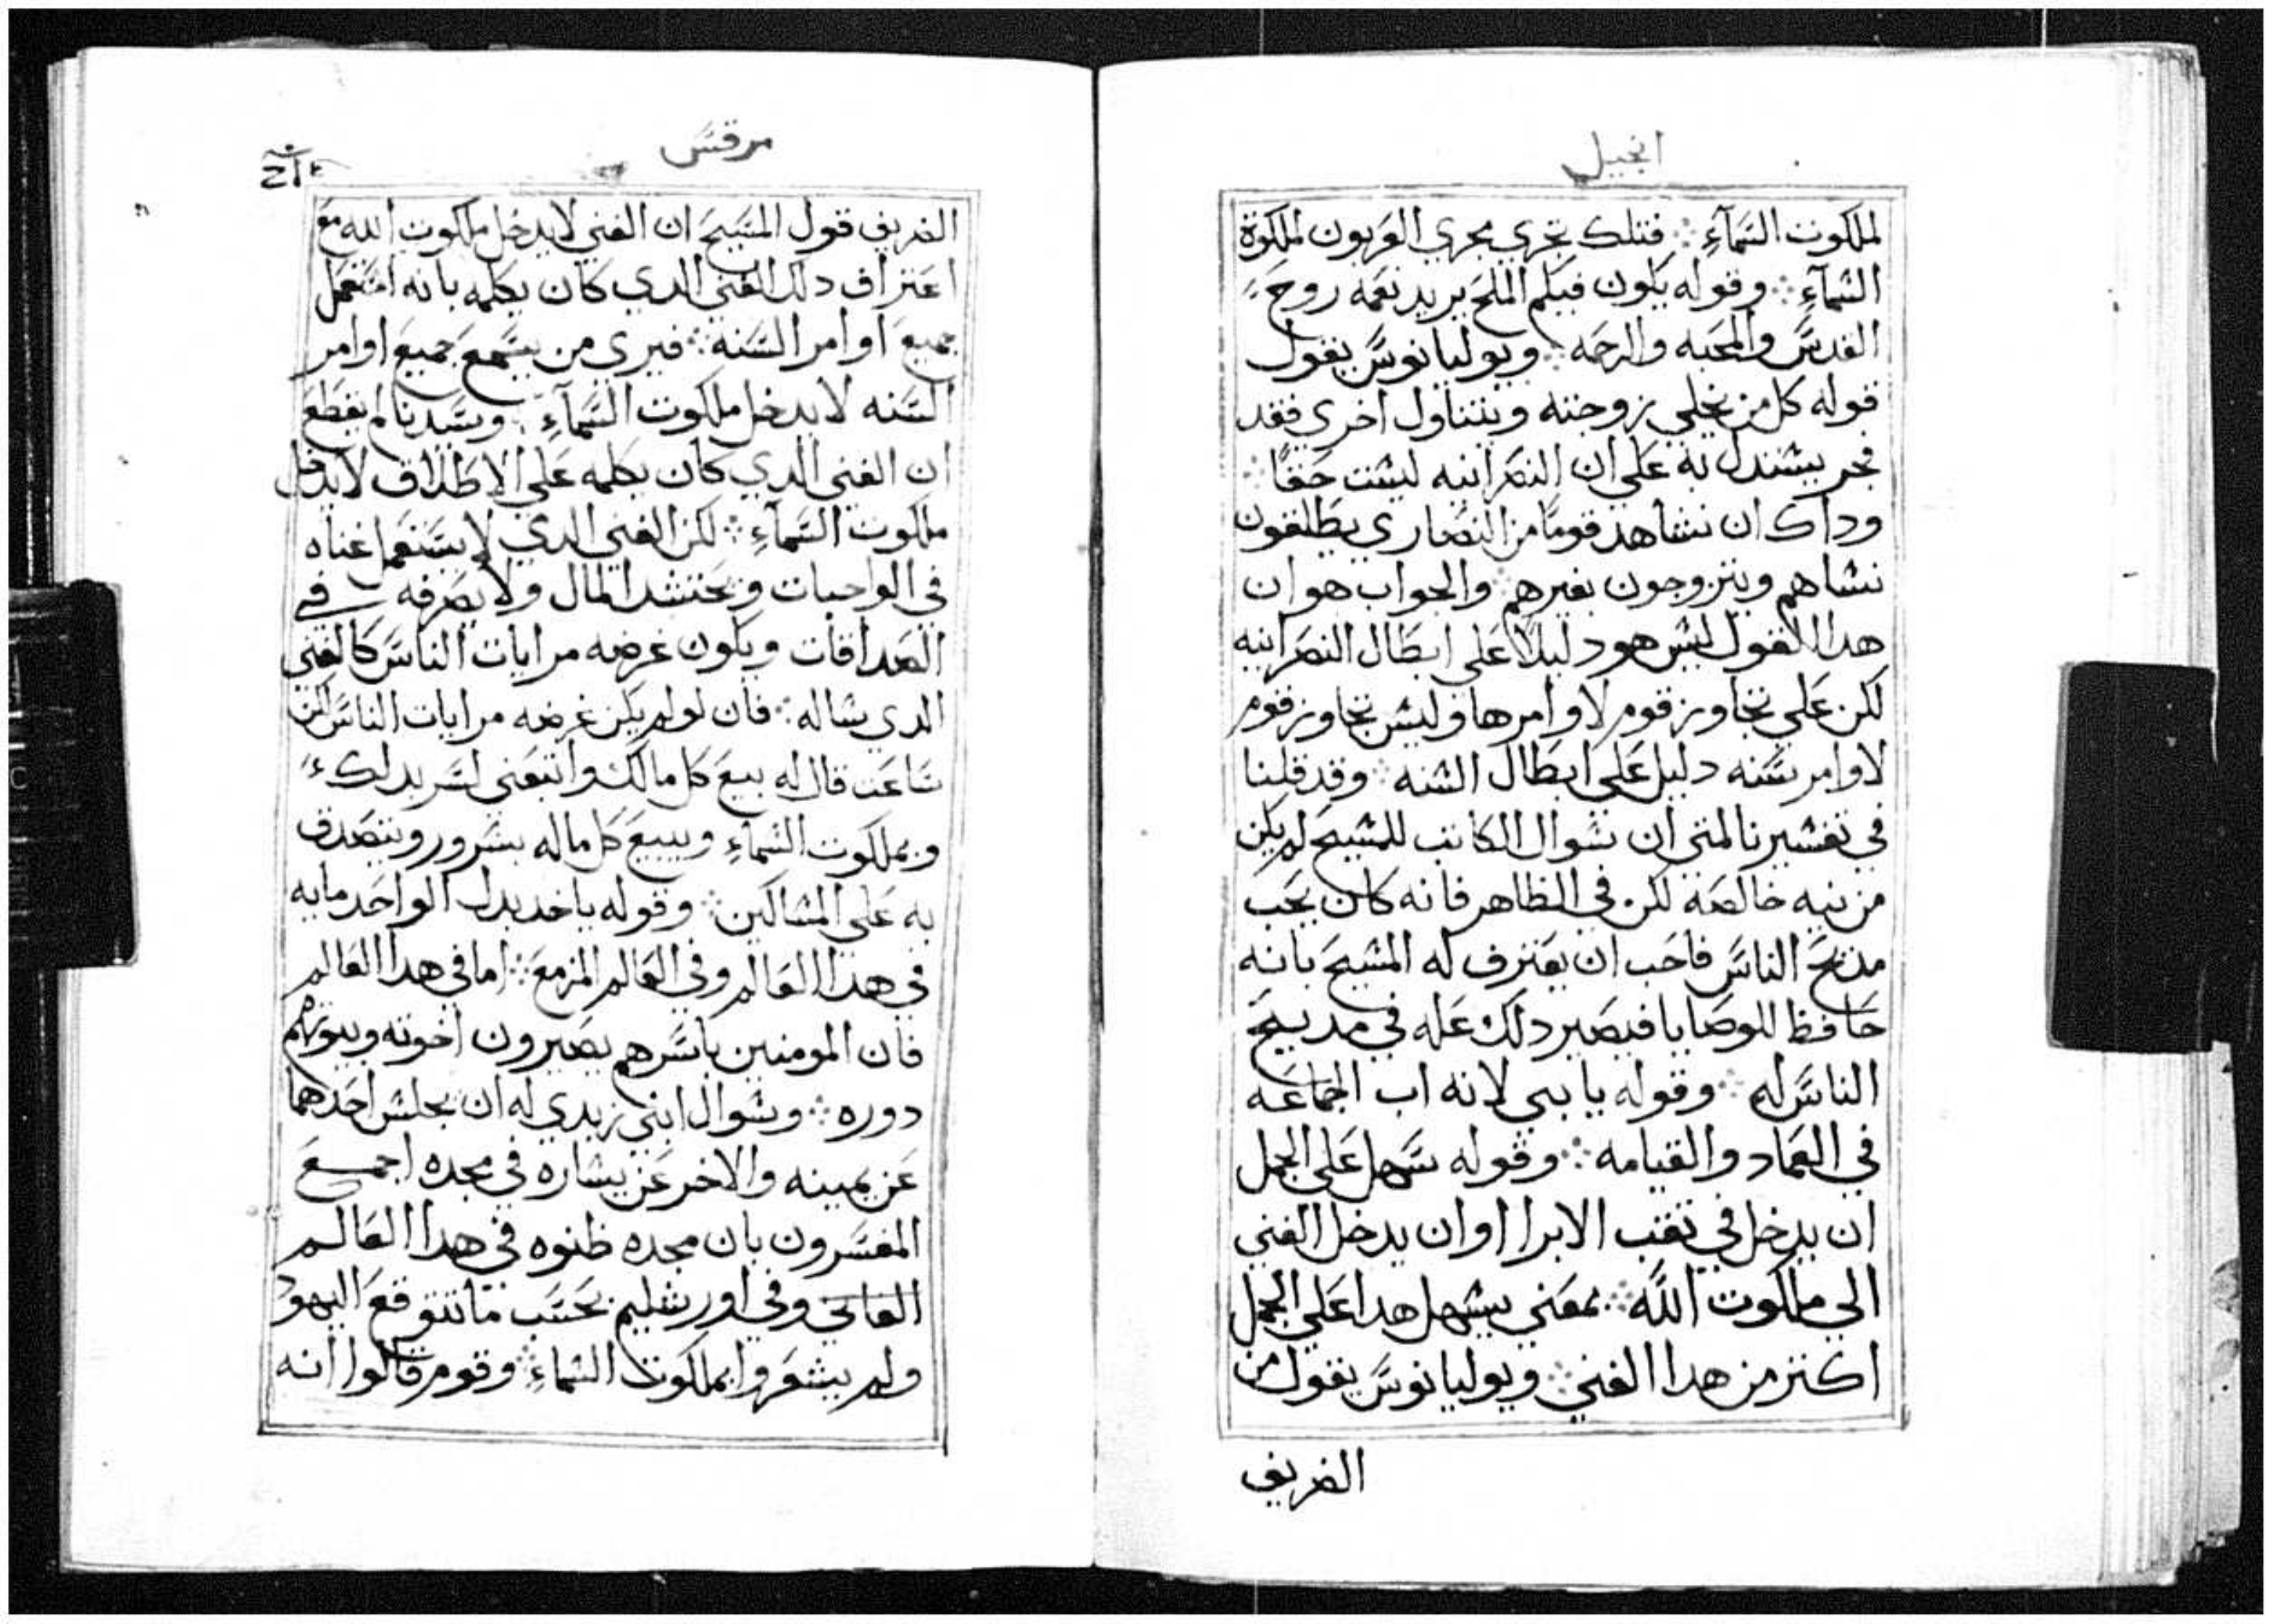 انجيل
لملكوت السمآء ⁘ فتلك تجري مجري العربون لملكوة
السمآء ⁘ وقوله يكون فيكم الملح يريد نعمه روح
القدس والمحبه والرحمه ⁘ ويوليانوس يقول
قوله كل من يخلي زوجته ويتناول اخري فقد
فجر يستدل به علي ان النصرانيه ليست حقًا ⁘
وداك ان نشاهد قومًا من النصاري يطلقون
نساهم ويتزوجون بغيرهم ⁘ والجواب هو ان
هدا القول ليس هو دليلاً علي ابطال النصرانيه
لكن علي تجاوز قوم لاوامرها وليس تجاوز قوم
لاوامر سنه دليل علي ابطال السنه ⁘ وقد قلنا
في تفسيرنا لمتي ان سوال الكاتب للمسيح لم يكن
من نيه خالصه لكن في الظاهر فانه كان يحب
مديح الناس فاحب ان يعترف له المسيح بانه
حافظ للوصايا فيصير دلك عله في مديح
الناس له ⁘ وقوله يا بني لانه اب الجماعه
في العماد والقيامه ⁘ وقوله سهل علي الجمل
ان يدخل في ثقب الابرا او ان يدخل الغني
الي ملكوت الله ⁘ بمعني يسهل هدا علي الجمل
اكتر من هدا الغني ⁘ ويوليانوس يقول من
الضريف
مرقس
الضريف قول المسيح ان الغني لا يدخل ملكوت الله مع
اعتراف دلك الغني الدي كان يكلمه بانه استعمل
جميع اوامر السنه ⁘ فيري من يسمع جميع اوامر
السنه لا يدخل ملكوت السمآء ⁘ وسيدنا لم يقطع
ان الغني الدي كان يكلمه علي الاطلاق لا يدخل
ملكوت السمآء ⁘ لكن الغني الدي لا يستعمل غناه
في الواجبات ويحتشد المال ولا يصرفه في
الصداقات ويكون غرضه مرايات الناس كالغني
الدي ساله ⁘ فان لو لم يكن غرضه مرايات الناس لكن
ساعت قال له بيع كل مالك واتبعني لسر بدلك
وبملكوت السمآء ويبيع كل ماله بسرور ويتصدق
به علي المساكين ⁘ وقوله ياخد بدل الواحد مايه
في هدا العالم وفي العالم المزمع ⁘ اما في هدا العالم
فان المومنين باسرهم يصيرون اخوته وبيوتهم
دوره ⁘ وسوال ابني زبدي له ان يجلس احدهما
عن يمينه والاخر عن يساره في مجده اجمع
المفسرون بان مجده ظنوه في هدا العالم
الفاني وفي اورشليم بحسب ما تتوقع اليهود
ولم يشعروا بملكوت السماء ⁘ وقوم قالوا انه